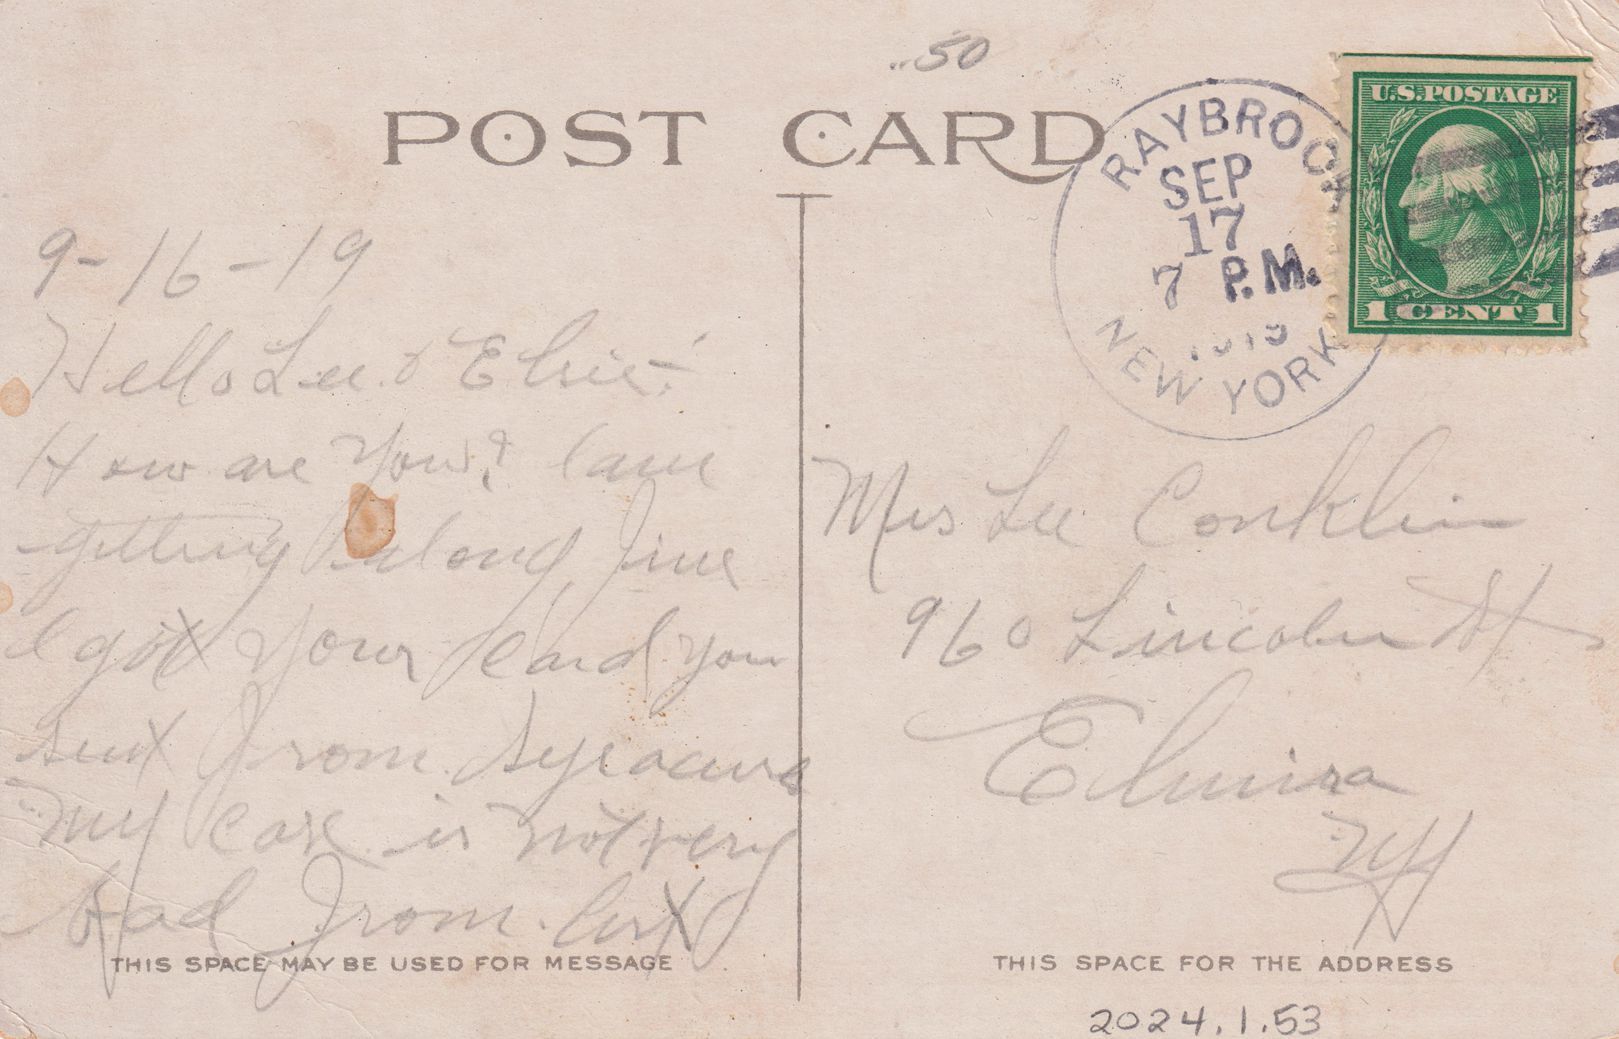 ..50
POST CARD
RAYBROOK
SEP
17
7 P.M.
1919
NEW YORK
U.S. POSTAGE
1 CENT 1
9-16-19
Hello Lee & Elsie:
How are you? I am
getting along fine
I got your card you
sent from Syracuse
My case is not very
bad from
Mrs Lee Conklin
960 Lincoln St
Elmira
NY
THIS SPACE MAY BE USED FOR MESSAGE
THIS SPACE FOR THE ADDRESS
2024.1.53